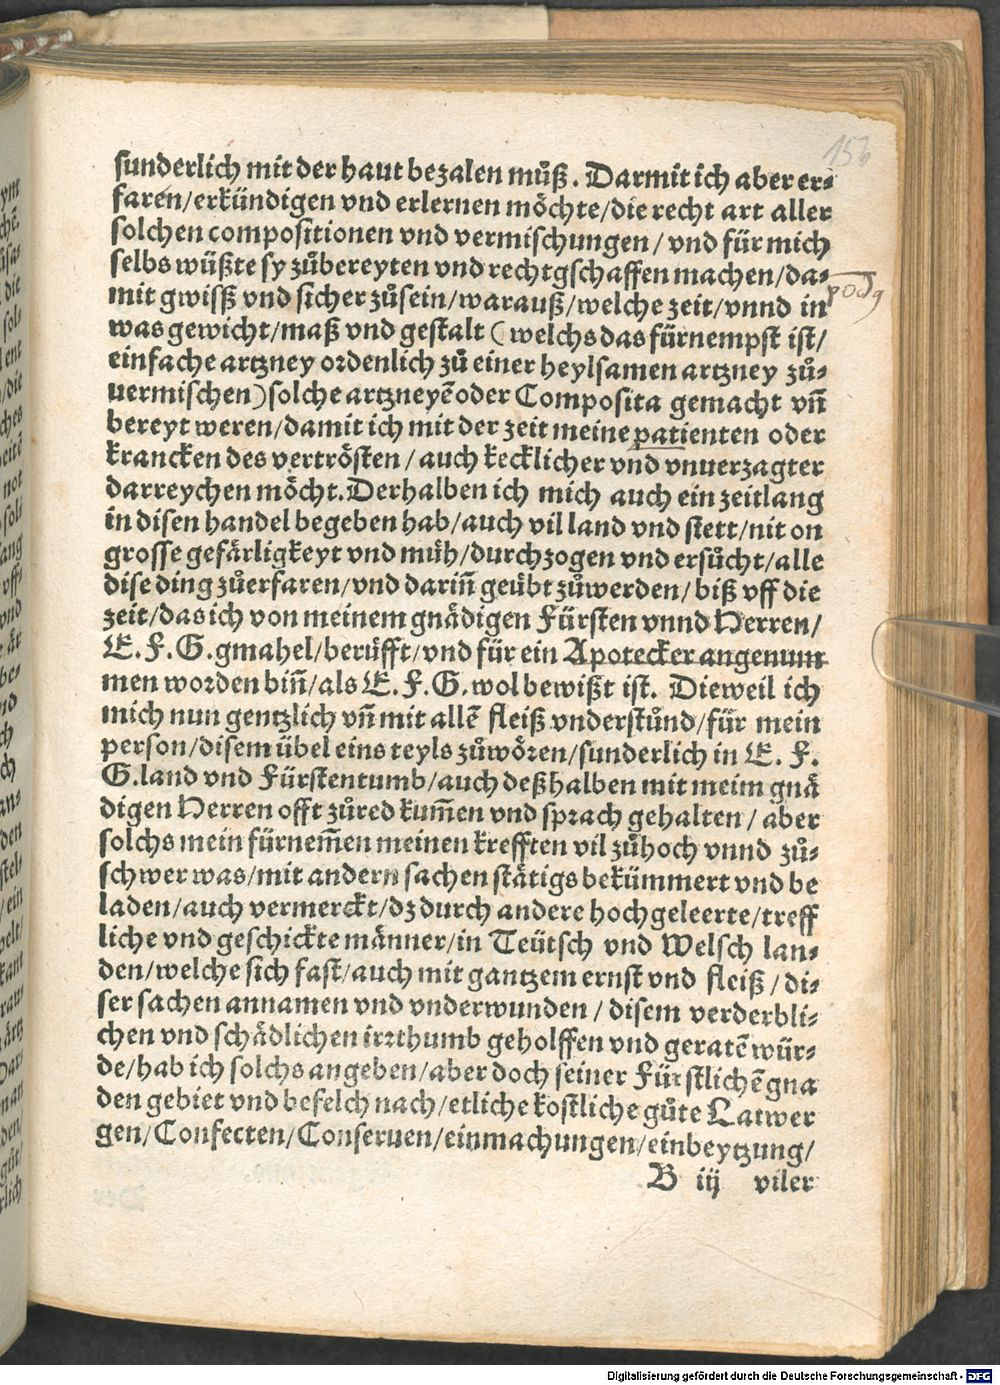 156
sunderlich mit der haut bezalen můß. Darmit ich aber er⸗
faren/erkündigen vnd erlernen möchte/die recht art aller
solchen compositionen vnd vermischungen/vnd für mich
selbs wüßte sy zůbereyten vnd rechtgschaffen machen/da⸗
mit gwisß vnd sicher zůsein/warauß/welche zeit/vnnd in
was gewicht/maß vnd gestalt (welchs das fürnempst ist/
einfache artzney ordenlich zů einer heylsamen artzney zů⸗
uermischen) solche artzneyē oder Composita gemacht vn̄
bereyt weren/damit ich mit der zeit meine patienten oder
krancken des vertrösten/auch kecklicher vnd vnuerzagter
darreychen möcht. Derhalben ich mich auch ein zeitlang
in disen handel begeben hab/auch vil land vnd stett/nit on
grosse gefärligkeyt vnd müh/durchzogen vnd ersůcht/alle
dise ding zůerfaren/vnd darin̄ geübt zůwerden/biß vff die
zeit/das ich von meinem gnädigen Fürsten vnnd Herren/
E. F. G. gmahel/berüfft/vnd für ein Apotecker angenum
men worden bin̄/als E. F. G. wol bewißt ist. Dieweil ich
mich nun gentzlich vn̄ mit allē fleiß vnderstůnd/für mein
person/disem übel eins teyls zůwören/sunderlich in E. F.
G. land vnd Fürstentumb/auch deßhalben mit meim gnä
digen Herren offt zůred kum̄en vnd sprach gehalten/aber
solchs mein fürnem̄en meinen krefften vil zůhoch vnnd zů⸗
schwer was/mit andern sachen stätigs bekümmert vnd be
laden/auch vermerckt/dz durch andere hochgeleerte/treff
liche vnd geschickte männer/in Teütsch vnd Welsch lan⸗
den/welche sich fast/auch mit gantzem ernst vnd fleiß/di⸗
ser sachen annamen vnd vnderwunden/disem verderbli⸗
chen vnd schädlichen irrthumb geholffen vnd geratē wür⸗
de/hab ich solchs angeben/aber doch seiner Fürstlichē gna
den gebiet vnd befelch nach/etliche kostliche gůte Latwer
gen/Confecten/Conseruen/einmachungen/einbeytzung/
B iij viler
Digitalisierung gefördert durch die Deutsche Forschungsgemeinschaft - DFG